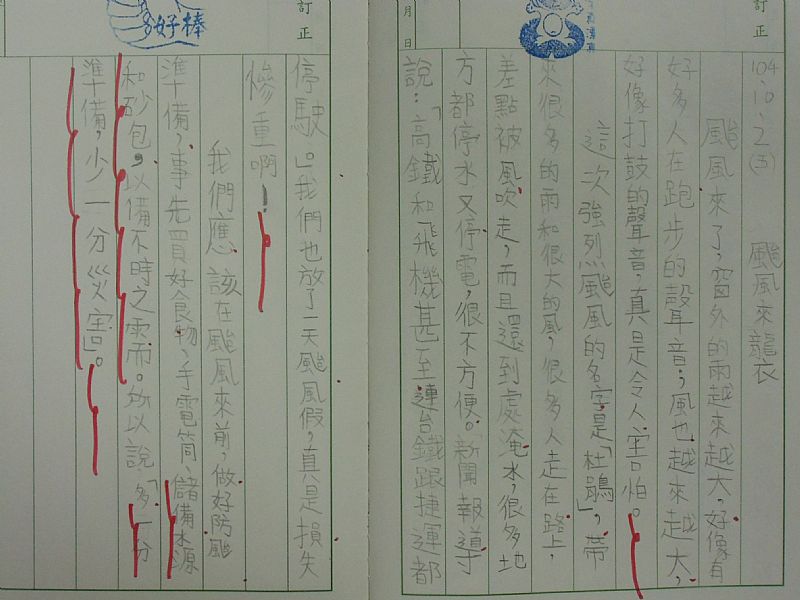 訂正
104.10.2(五) 颱風來襲
颱風來了,窗外的雨越來越大,好像有
好多人在跑步的聲音;風也越來越大,
好像打鼓的聲音,真是令人害怕。
這次強烈颱風的名字是「杜鵑」,帶
來很多的雨和很大的風,很多人走在路上,
差點被風吹走,而且還到處淹水,很多地
方都停水又停電,很不方便。新聞報導
說:「高鐵和飛機甚至連台鐵跟捷運都
月 日
訂正
好棒
停駛。」我們也放了一天颱風假,真是損失
慘重啊!
我們應該在颱風來前,做好防颱
準備,事先買好食物、手電筒、儲備水源
和砂包,以備不時之需。所以說,「多一分
準備,少一分災害」。